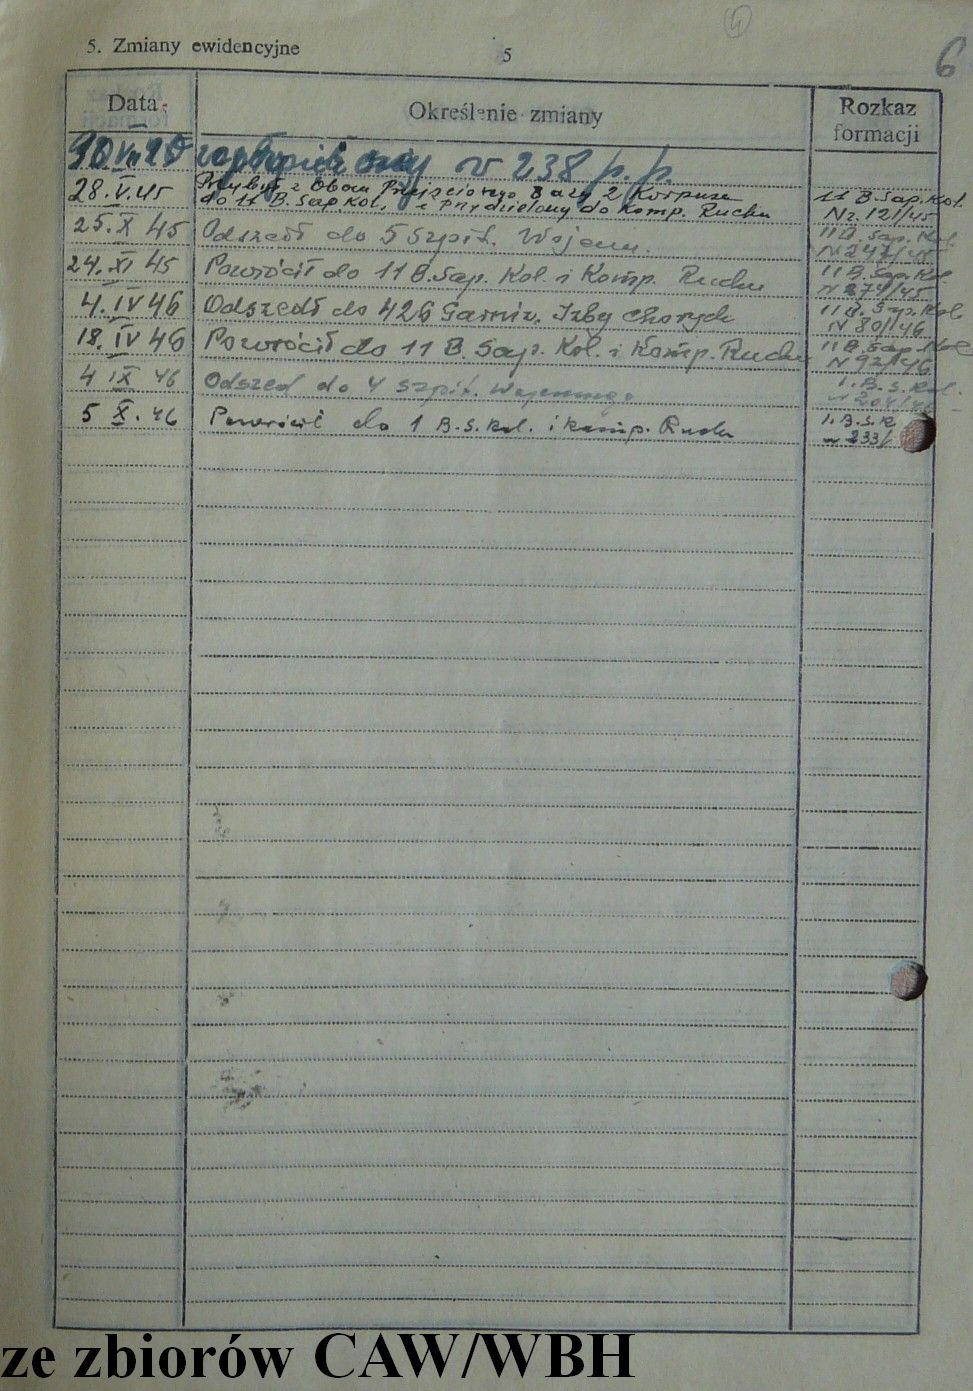 4
6
5. Zmiany ewidencyjne
5
Data
Określenie zmiany
Rozkaz
formacji
w 238 p.p.
28.V.45 Przybył z Obozu Przejściowego Bazy 2 Korpusu
do 11 B. Sap. Kol. i przydzielony do Komp. Ruchu
11 B. Sap. Kol.
Nr. 121/45
25.X 45 Odszedł do 5 Szpit. Wojenn.
11 B. Sap. Kol
N 247/45
24. XI 45 Powrócił do 11 B. Sap. Kol. i Komp. Ruchu
11 B. Sap. Kol
N 274/45
4. IV 46 Odszedł do 426 Garniz. Izby Chorych
11 B. Sap. Kol
N 80/46
18. IV 46 Powrócił do 11 B. Sap. Kol. i Komp. Ruchu
11 B. Sap. Kol
N 92/46
4 IX 46 Odszed do 4 Szpit. Wojennego
1. B. S. Kol.
N 204/46
5 X. 46 Powrócił do 1 B. S. kol. i komp. Ruchu
1. B. S. K.
N 233/
ze zbiorów CAW/WBH